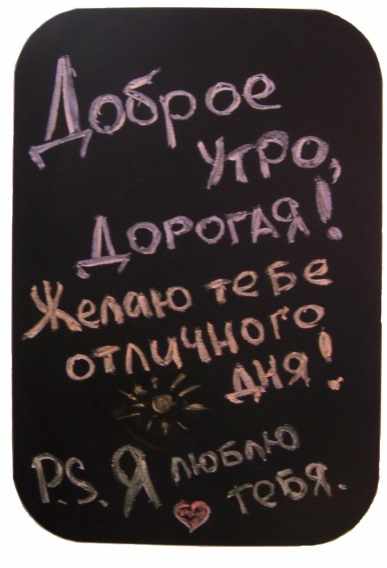 Доброе
утро,
дорогая!
Желаю тебе
отличного
дня!
P.S. Я люблю
тебя.